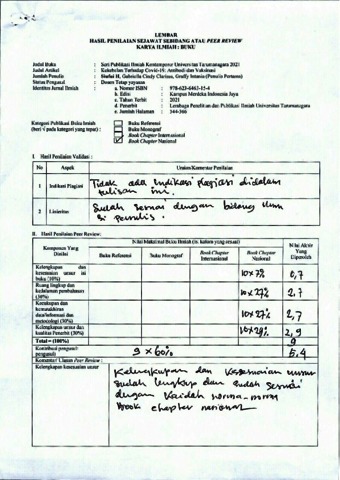 LEMBAR
HASIL PENILAIAN SEJAWAT SEBIDANG ATAU PEER REVIEW
KARYA ILMIAH : BUKU
Judul Buku : Seri Publikasi Ilmiah Kontemporer Universitas Tarumanagara 2021
Judul Artikel : Kekebalan Terhadap Covid-19: Antibodi dan Vaksinasi
Jumlah Penulis : Shirly Gunawan, Gabriella Cindy Clarissa,
Status Pengusul : Dosen Tetap yayasan
Identitas Jurnal Ilmiah : a. Nomor ISBN : 978-623-6463-15-4
b. Edisi : Kampus Merdeka Indonesia Jaya
c. Tahun Terbit : 2021
d. Penerbit : Lembaga Penelitian dan Publikasi Ilmiah Universitas Tarumanagara
e. Jumlah Halaman : 344-366
Kategori Publikasi Buku Ilmiah : Buku Referensi
(beri √ pada kategori yang tepat) : Buku Monograf
Book Chapter Internasional
Book Chapter Nasional
I. Hasil Penilaian Validasi :
No Aspek Uraian/Komentar Penilaian
1 Indikasi Plagiasi Tidak ada indikasi plagiasi didalam
tulisan ini.
2 Linieritas Sudah sesuai dengan bidang ilmu
si penulis.
II. Hasil Penilaian Peer Review:
Komponen Yang Dinilai
Nilai Maksimal Buku Ilmiah (isi kolom yang sesuai)
Nilai Akhir Yang Diperoleh
Buku Referensi Buku Monograf Book Chapter Internasional Book Chapter Nasional
Kelengkapan dan kesesuaian unsur isi buku (10%) 10x7% 0,7
Ruang lingkup dan kedalaman pembahasan (30%) 10x27% 2,7
Kecukupan dan kemutakhiran data/informasi dan metodologi (30%) 10x27% 2,7
Kelengkapan unsur dan kualitas Penerbit (30%) 10x29% 2,9
Total = (100%) 9
Kontribusi pengusul 9 x 60% 5,4
Komentar/ Ulasan Peer Review :
Kelengkapan kesesuaian unsur Kelengkapan dan Kesesuaian unsur
sudah lengkap dan sudah sesuai
dengan kaidah norma-norma
Book chapter nasional